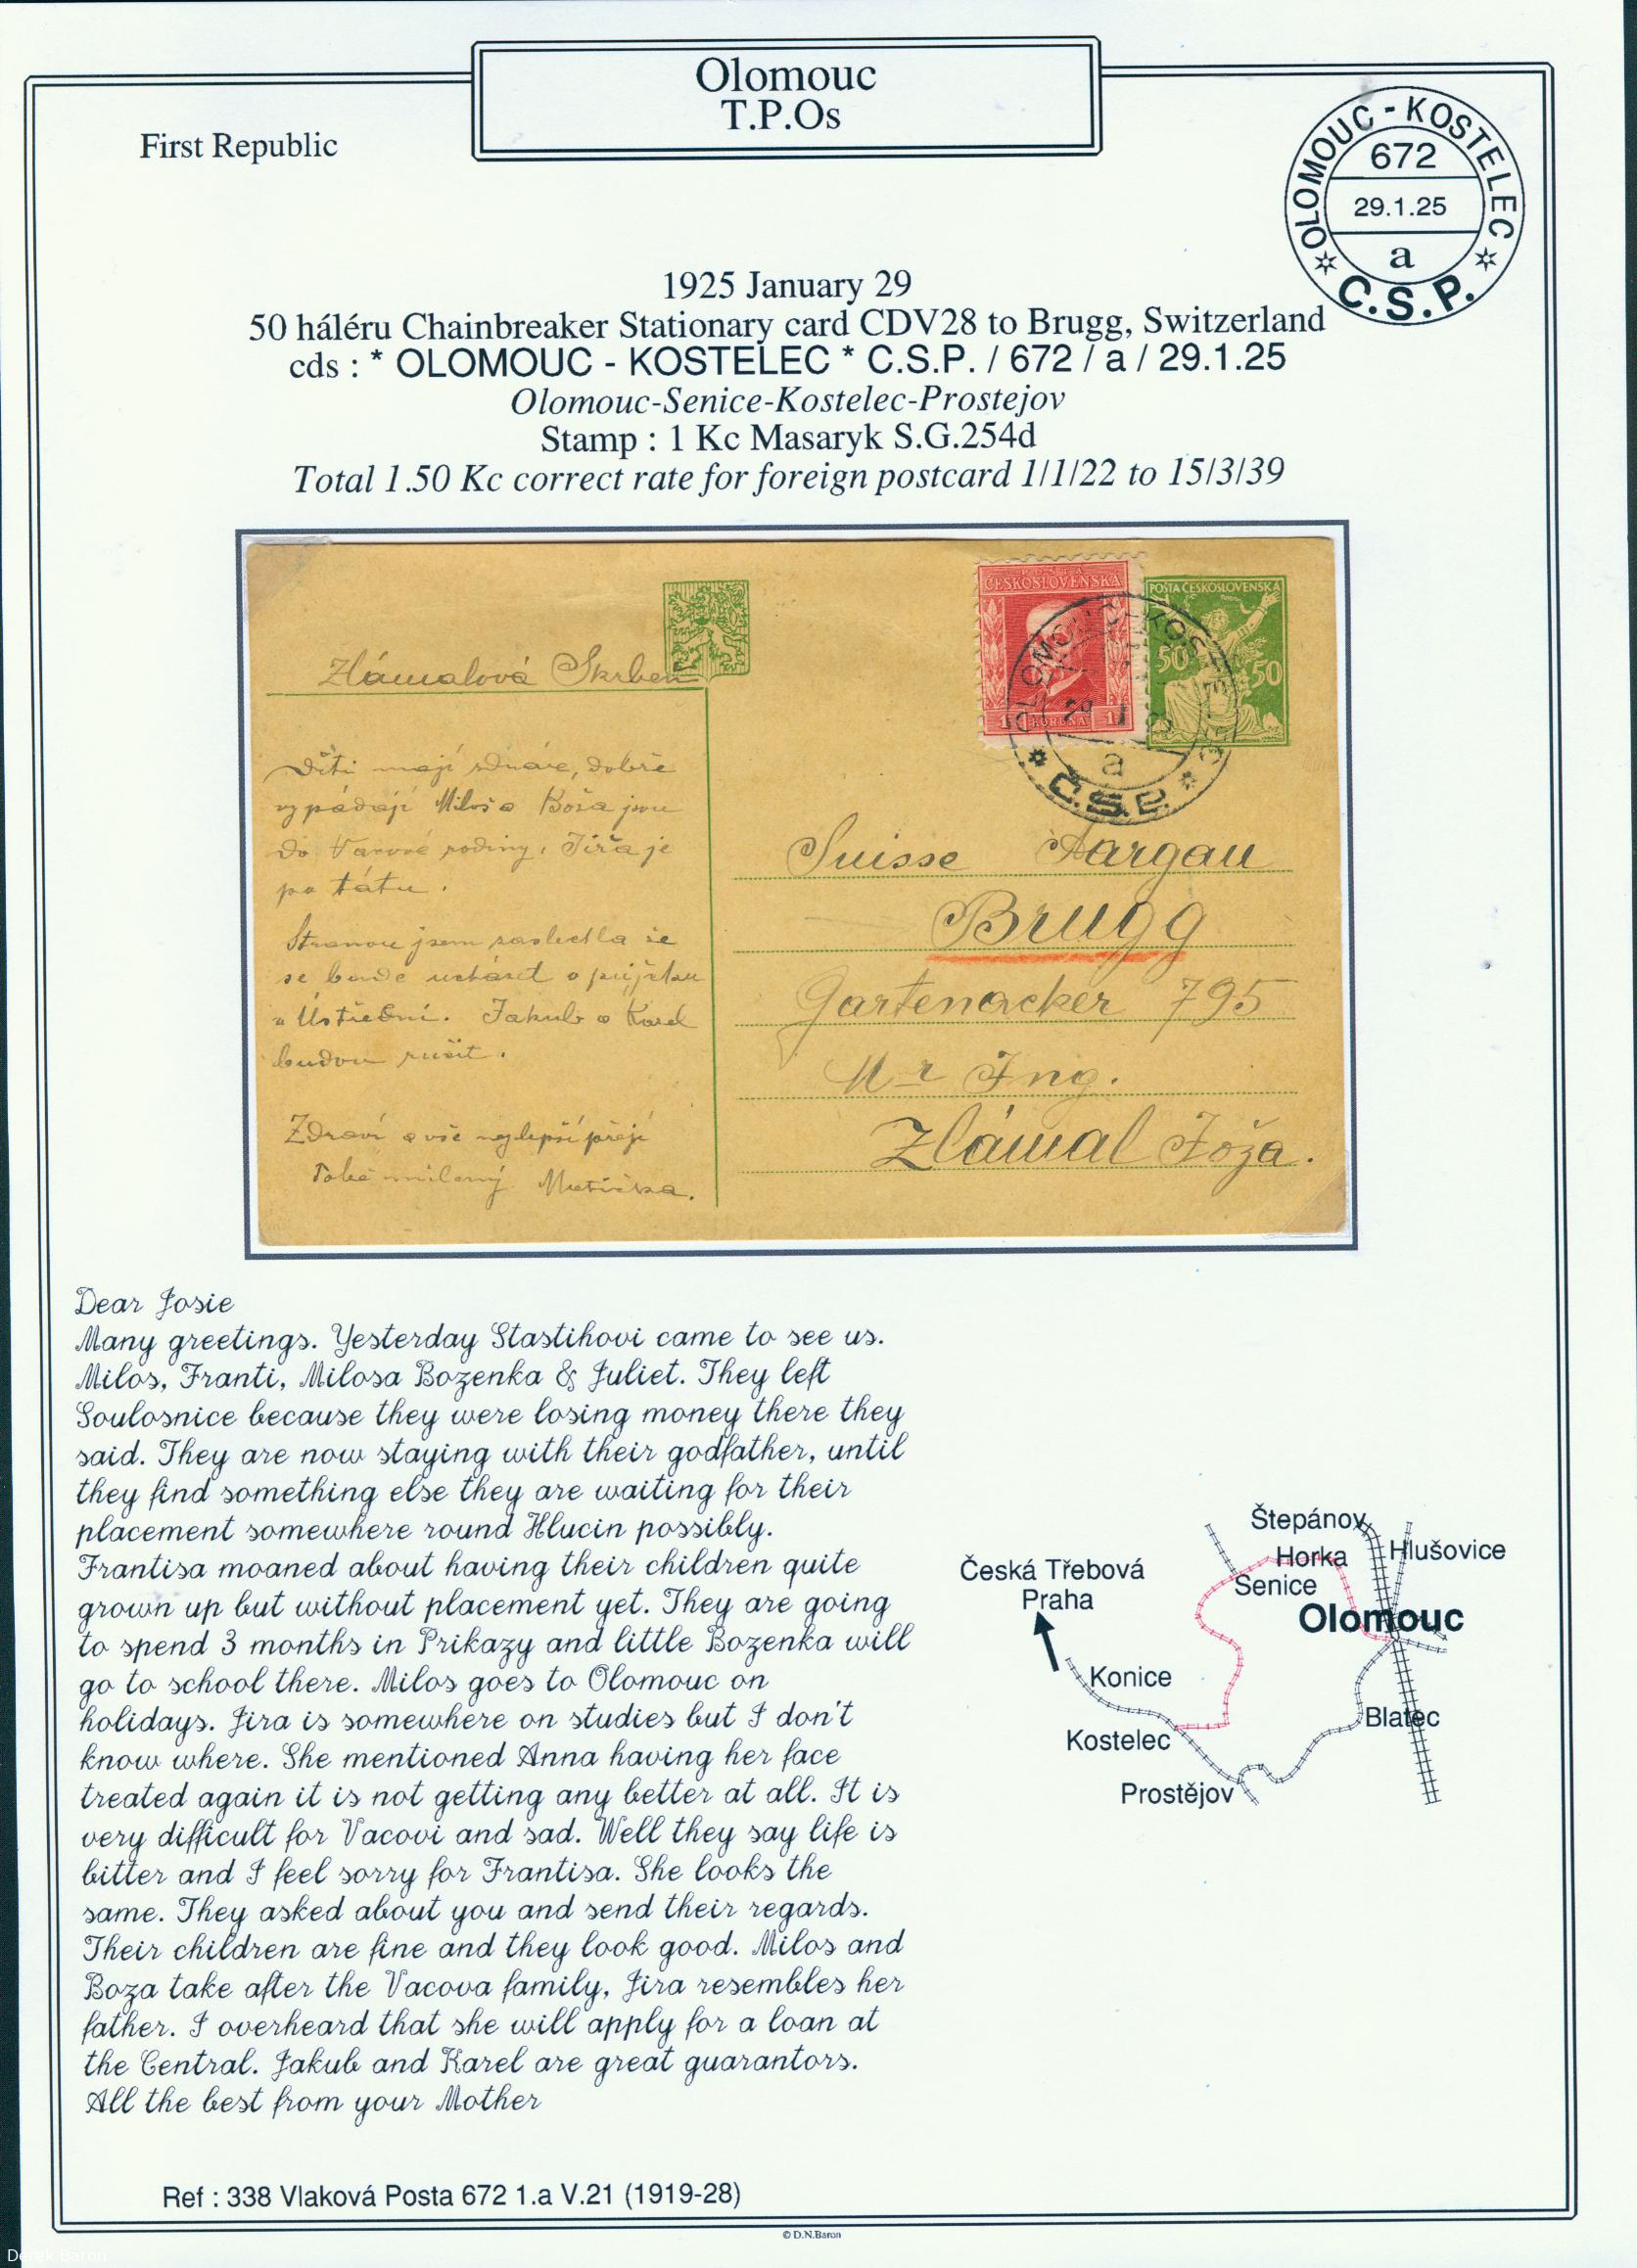 Olomouc
T.P.Os
First Republic
OLOMOUC - KOSTELEC
672
29.1.25
a
C.S.P.
1925 January 29
50 háléru Chainbreaker Stationary card CDV28 to Brugg, Switzerland
cds : * OLOMOUC - KOSTELEC * C.S.P. / 672 / a / 29.1.25
Olomouc-Senice-Kostelec-Prostejov
Stamp : 1 Kc Masaryk S.G.254d
Total 1.50 Kc correct rate for foreign postcard 1/1/22 to 15/3/39
POŠTA
ČESKOSLOVENSKÁ
1 KORUNA 1
POŠTA ČESKOSLOVENSKÁ
50 50
a
Č.S.P.
Zlámalová Skrbeň
Děti mají zdrávé, dobře
vypádají Miloš a Boža jsou
do Vacové rodiny, Jiřa je
po tátu.
Stranou jsem zaslechla že
se bude ucházet o půjčku
u Ústřední. Jakub a Karel
budou ručit.
Zdraví a vše nejlepší přeji
Tobě milený Matička.
Suisse Aargau
Brugg
Gartenacker 795
Mr Ing.
Zlámal Joža.
Dear Josie
Many greetings. Yesterday Stastihovi came to see us.
Milos, Franti, Milosa Bozenka & Juliet. They left
Soulosnice because they were losing money there they
said. They are now staying with their godfather, until
they find something else they are waiting for their
placement somewhere round Hlucin possibly.
Frantisa moaned about having their children quite
grown up but without placement yet. They are going
to spend 3 months in Prikazy and little Bozenka will
go to school there. Milos goes to Olomouc on
holidays. Jira is somewhere on studies but I don't
know where. She mentioned Anna having her face
treated again it is not getting any better at all. It is
very difficult for Vacovi and sad. Well they say life is
bitter and I feel sorry for Frantisa. She looks the
same. They asked about you and send their regards.
Their children are fine and they look good. Milos and
Boza take after the Vacova family, Jira resembles her
father. I overheard that she will apply for a loan at
the Central. Jakub and Karel are great guarantors.
All the best from your Mother
Štepánov
Horka
Hlušovice
Senice
Česká Třebová
Praha
Olomouc
Konice
Blatec
Kostelec
Prostějov
Ref : 338 Vlaková Posta 672 1.a V.21 (1919-28)
© D.N.Baron
Derek Baron